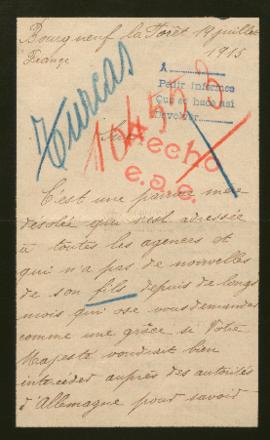 Bourgneuf la Forêt 19 juillet
1915
France
Turcas
A
Pedir informes
Que se haga así
Devolver
Hecho
e.a.e.
C'est une pauvre mère
désolée qui s'est adressée
à toutes les agences et
qui n'a pas de nouvelles
de son fils depuis de longs
mois qui ose vous demander
comme une grâce si Votre
Majesté voudrait bien
intercéder auprès des autorités
d'Allemagne pour savoir